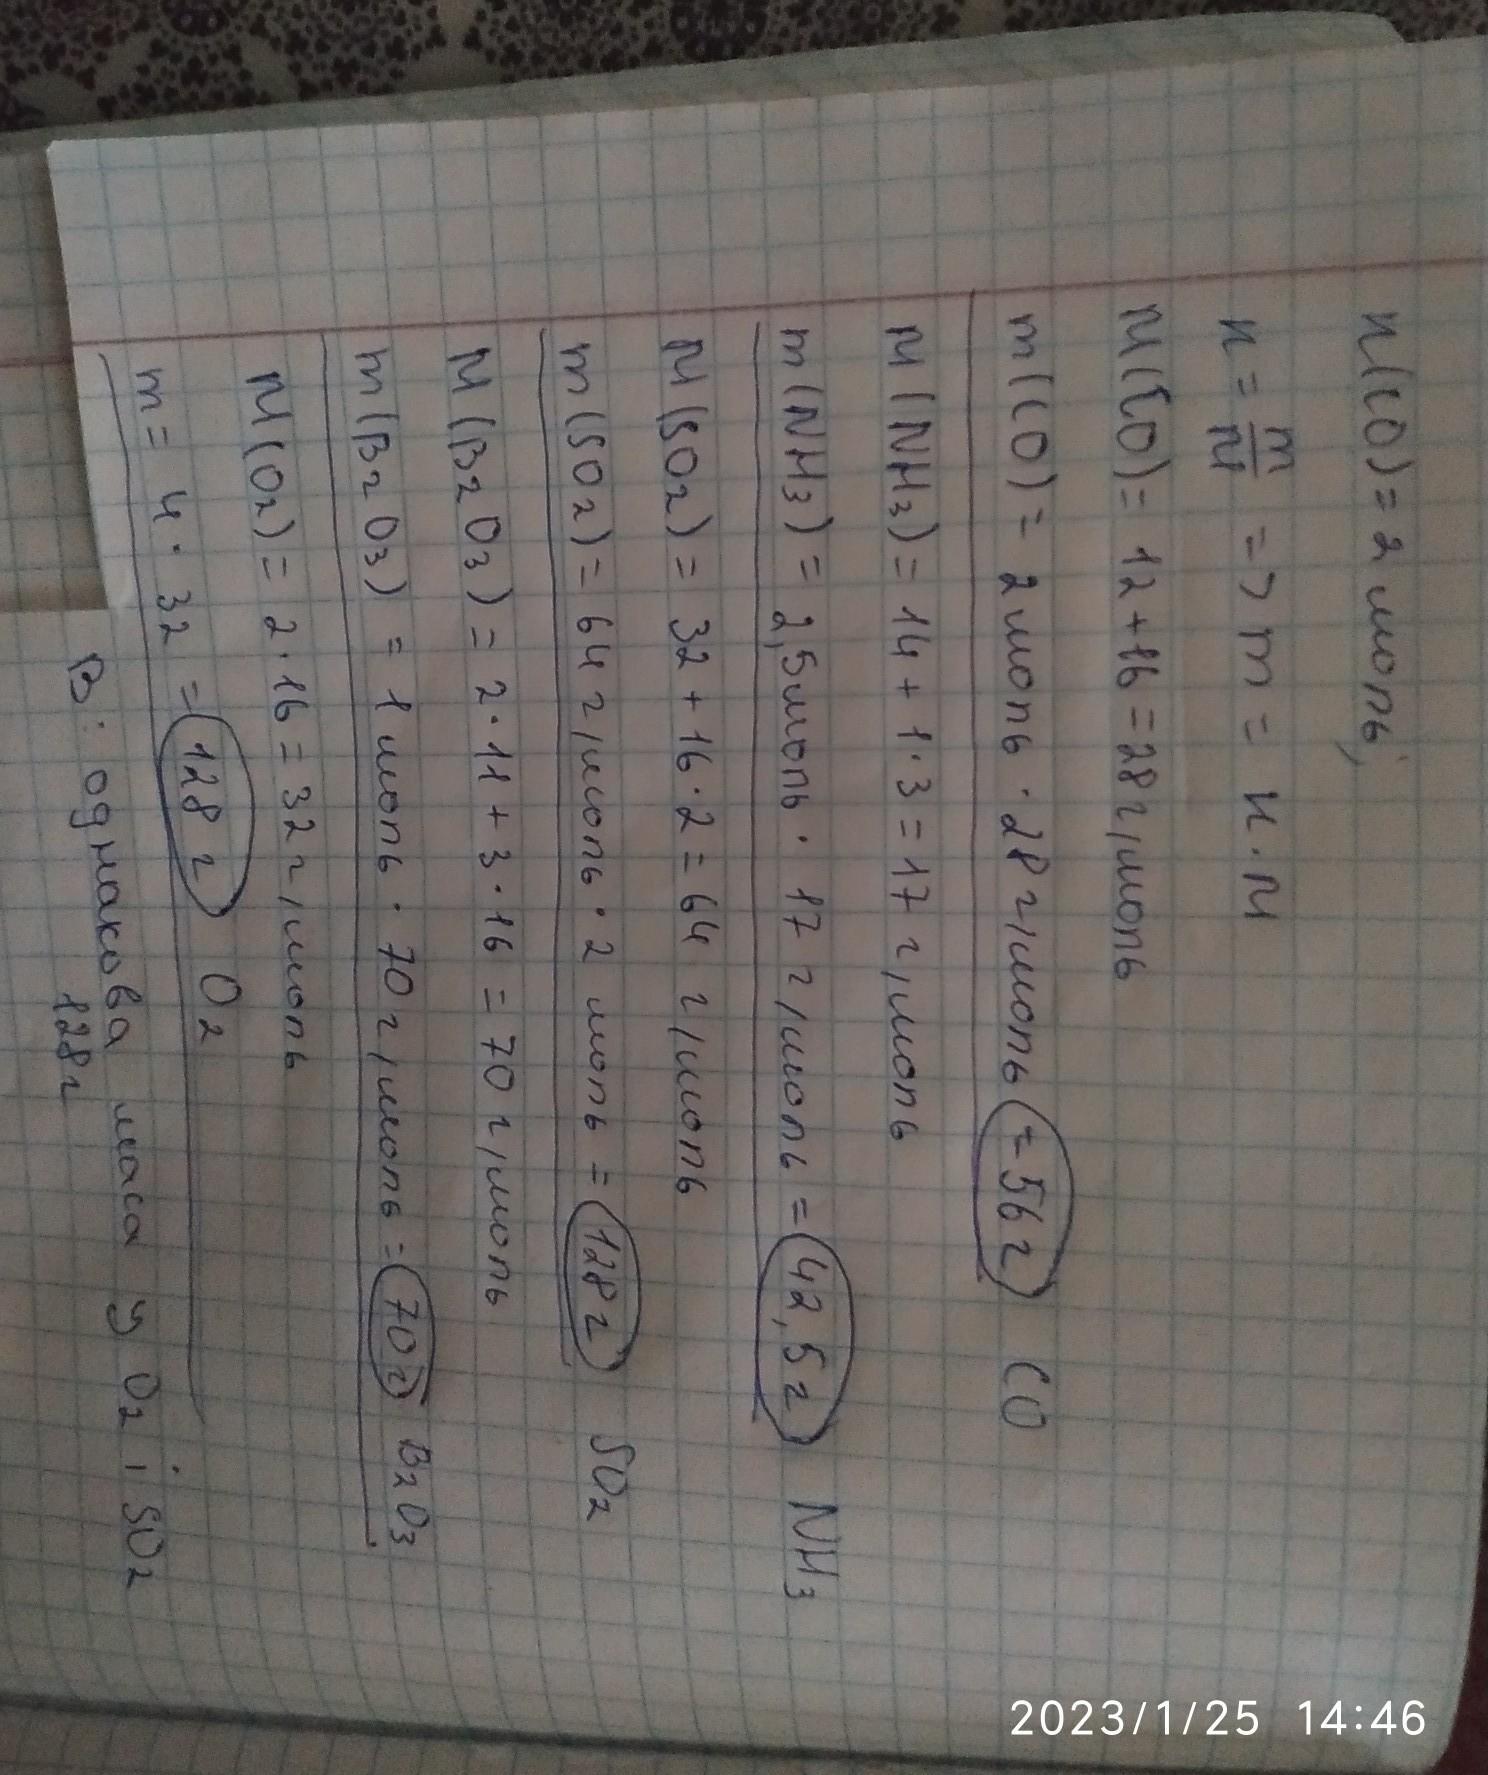 n(CO) = 2 моль;
n = m/M => m = n · M
M(CO) = 12 + 16 = 28 г/моль
m(CO) = 2 моль · 28 г/моль = 56 г CO
M(NH3) = 14 + 1·3 = 17 г/моль
m(NH3) = 2,5 моль · 17 г/моль = 42,5 г NH3
M(SO2) = 32 + 16·2 = 64 г/моль
m(SO2) = 64 г/моль · 2 моль = 128 г SO2
M(B2O3) = 2·11 + 3·16 = 70 г/моль
m(B2O3) = 1 моль · 70 г/моль = 70 г B2O3
M(O2) = 2·16 = 32 г/моль
m = 4 · 32 = 128 г O2
В: однакова маса у O2 і SO2
128 г
2023/1/25 14:46